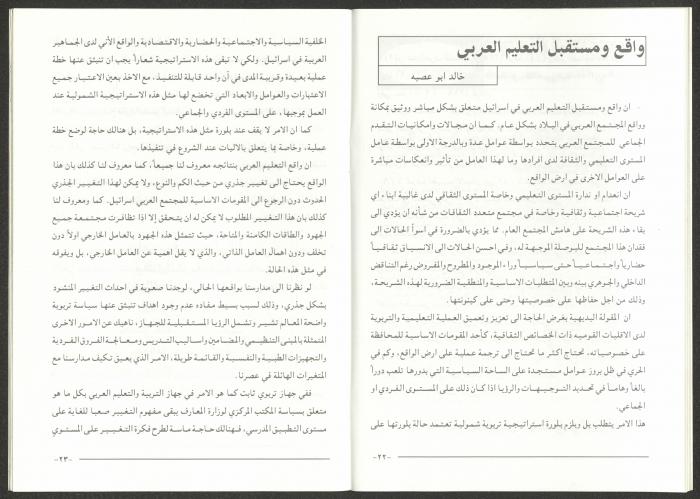 واقع ومستقبل التعليم العربي
خالد ابو عصبه
ان واقع ومستقبل التعليم العربي في اسرائيل متعلق بشكل مباشر ووثيق بمكانة
وواقع المجتمع العربي في البلاد بشكل عام. كما ان مجالات وامكانيات التقدم
الجماعي للمجتمع العربي يتحدد بواسطة عوامل عدة وبالدرجة الاولى بواسطة عامل
المستوى التعليمي والثقافة لدى افرادها وما لهذا العامل من تأثير وانعكاسات مباشرة
على العوامل الاخرى في ارض الواقع.
ان انعدام او ندارة المستوى التعليمي وخاصة المستوى الثقافي لدى غالبية ابناء اي
شريحة اجتماعية وثقافية وخاصة في مجتمع متعدد الثقافات من شأنه ان يؤدي الى
بقاء هذه الشريحة على هامش المجتمع العام. مما يؤدي بالضرورة في اسوأ الحالات الى
فقدان هذا المجتمع للبوصلة الموجهة له، وفي احسن الحالات الى الانسياق ثقافياً
حضارياً واجتماعياً حتى سياسياً وراء الموجود والمطروح والمفروض رغم التناقض
الداخلي والجوهري بينه وبين المتطلبات الاساسية والمنطقية الضرورية لهذه الشريحة،
وذلك من اجل حفاظها على خصوصيتها وحتى على كينونتها.
ان المقولة البديهية بغرض الحاجة الى تعزيز وتعميق العملية التعليمية والتربوية
لدى الاقليات القوميه ذات الخصائص الثقافية، كأحد المقومات الاساسية للمحافظة
على خصوصياته، تحتاج اكثر ما تحتاج الى ترجمة عملية على ارض الواقع، وكم في
الحري في ظل بروز عوامل مستجدة على الساحة السياسية التي بدورها تلعب دوراً
بالغاً وهاماً في تحديد التوجيهات والرؤيا اذا كان ذلك على المستوى الفردي او
الجماعي.
هذا الامر يتطلب بل ويلزم بلورة استراتيجية تربوية شمولية تعتمد حالة بلورتها على
-٢٢-
الخلفية السياسية والاجتماعية والحضارية والاقتصادية والواقع الأني لدى الجماهير
العربية في اسرائيل. ولكي لا تبقى هذه الاستراتيجية شعاراً يجب ان تنبثق عنها خطة
عملية بعيدة وقريبة المدى في آن واحد قابلة للتنفيذ، مع الاخذ بعين الاعتبار جميع
الاعتبارات والعوامل والابعاد التي تخضع لها مثل هذه الاستراتيجية الشمولية عند
العمل بموجبها، على المستوى الفردي والجماعي.
كما ان الامر لا يقف عند بلورة مثل هذه الاستراتيجية، بل هنالك حاجة لوضع خطة
عملية، وخاصة بما يتعلق بالاليات عند الشروع في تنفيذها.
ان واقع التعليم العربي بنتائجه معروف لنا جميعاً، كما معروف لنا كذلك بان هذا
الواقع يحتاج الى تغيير جذري من حيث الكم والنوع، ولا يمكن لهذا التغيير الجذري
الحدوث دون الرجوع الى المقومات الاساسية للمجتمع العربي اسرائيل. كما ومعروف لنا
كذلك بان هذا التغيير المطلوب لا يمكن له ان يتحقق إلا اذا تظافرت مجتمعة جميع
الجهود والطاقات الكامنة والمتاحة، حيث تتمثل هذه الجهود بالعامل الخارجي اولاً دون
تخلف ودون اهمال العامل الذاتي، والذي لا يقل اهمية عن العامل الخارجي، بل ويفوقه
في مثل هذه الحالة.
لو نظرنا الى مدارسنا بواقعها الحالي، لوجدنا صعوبة في احداث التغيير المنشود
بشكل جذري، وذلك لسبب بسيط مفاده عدم وجود اهداف تنبثق عنها سياسة تربوية
واضحة المعالم تشير وتشمل الرؤيا المستقبلية للجهاز، ناهيك عن الامور الاخرى
المتمثلة بالمبنى التنظيمي والمضامين واساليب التدريس ومعالجة الفروق الفردية
والتجهيزات الطبية والنفسية والقائمة طويلة، الامر الذي يعيق تكيف مدارسنا مع
المتغيرات الهائلة في عصرنا.
ففي جهاز تربوي ثابت كما هو الامر في جهاز التربية والتعليم العربي بكل ما هو
متعلق بسياسة المكتب المركزي لوزارة المعارف يبقى مفهوم التغيير صعبا للغاية على
مستوى التطبيق المدرسي، فهنالك حاجة ماسة لطرح فكرة التغيير على المستوي
-٢٣-